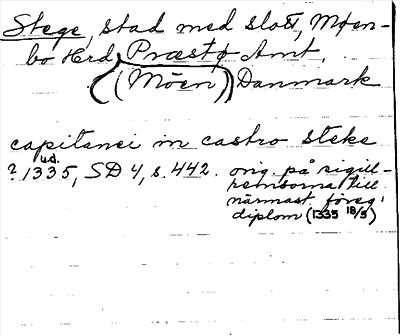 Stege, stad med slott, Møen-
bo Hrd, Præstø Amt,
(Möen) Danmark
capitanei in castro steke
? u.d. 1335, SD 4, s. 442. orig. på sigill-
remsorna till
närmast föreg.
diplom (1335 18/5)